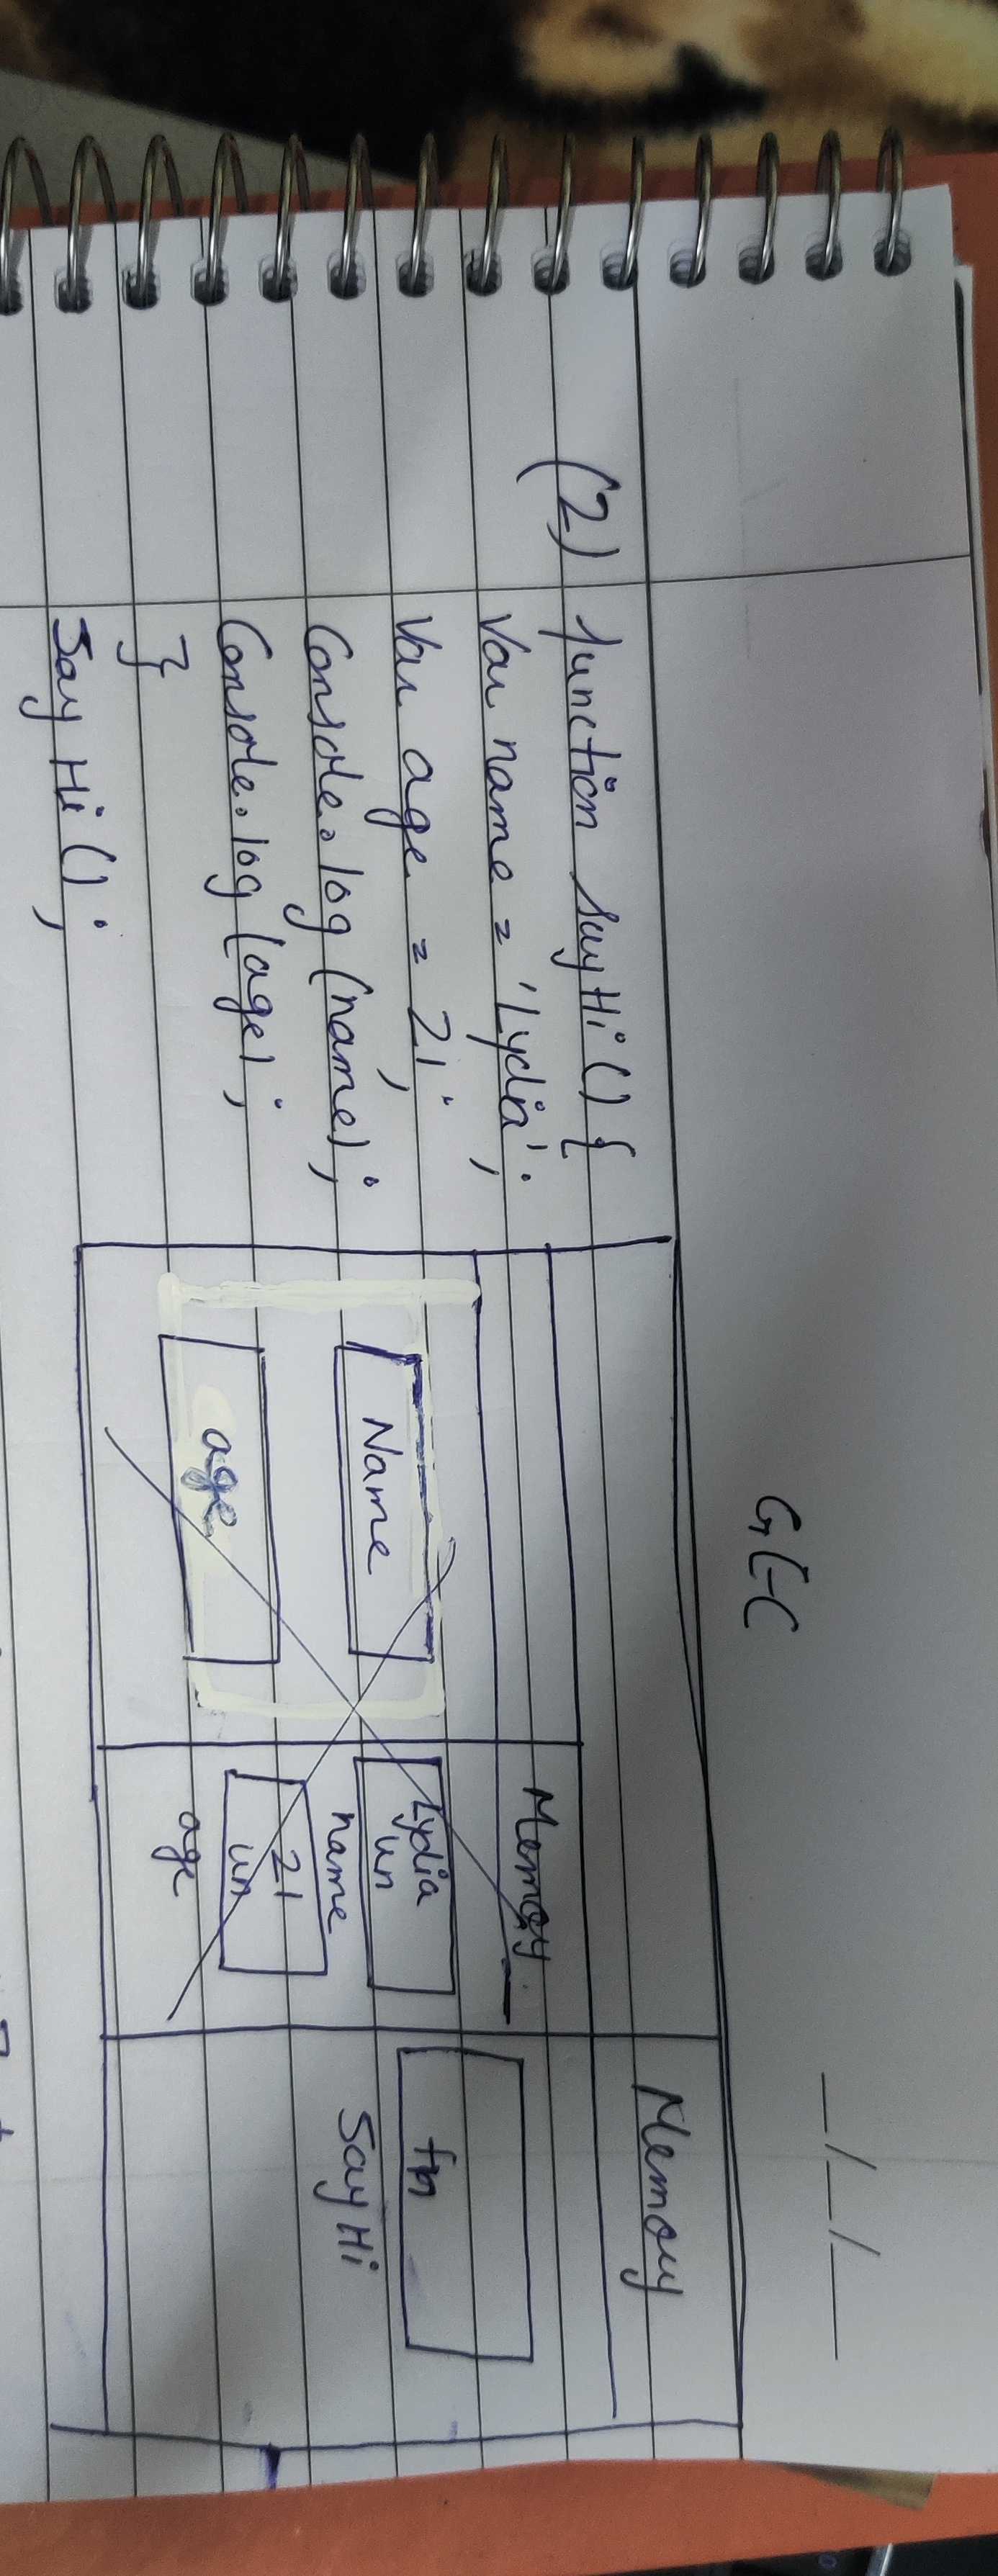 __/__/__
GEC
(2) function sayHi () {
Var name = 'Lydia';
Var age = 21;
Console.log (name);
Console.log (age);
}
Say Hi ();
Memory
Memory
fn
Say Hi
Lydia
un
name
21
un
age
Name
age